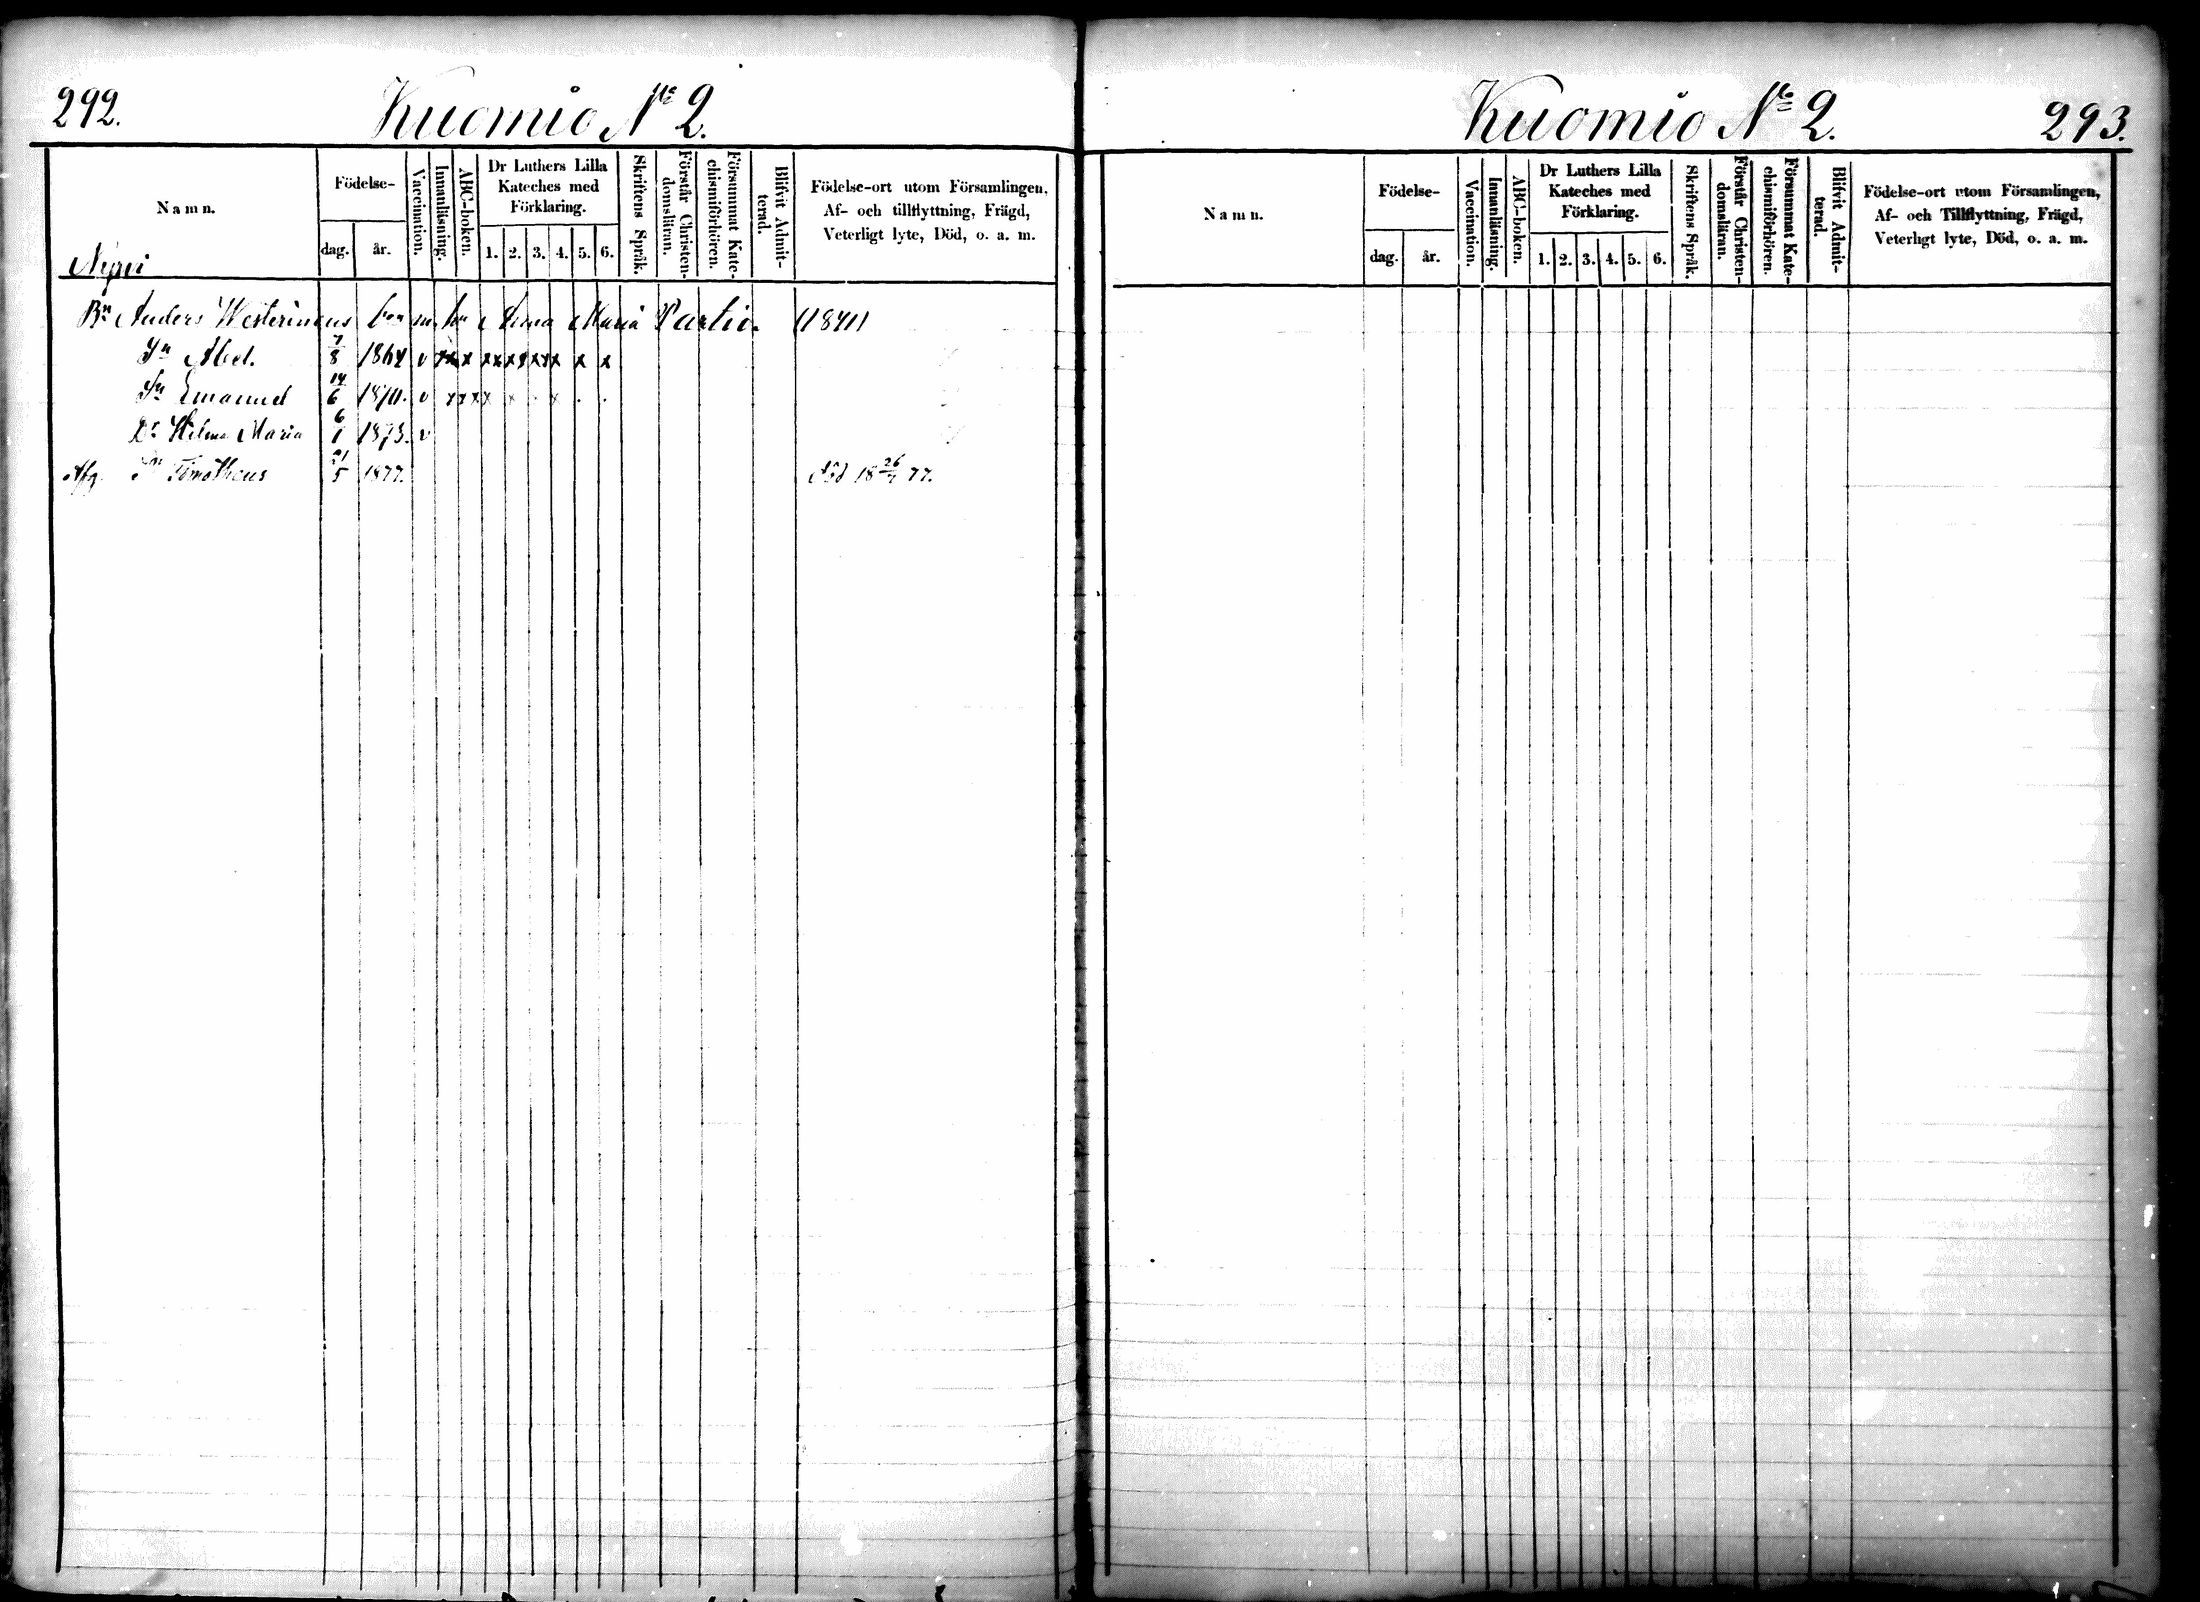 292.
Kuomio № 2.
Namn.
Födelse-
dag.
år.
Vaccination.
Innanläsning.
ABC-boken.
Dr Luthers Lilla
Kateches med
Förklaring.
1. 2. 3. 4. 5. 6.
Skriftens Språk.
Förstår Christen-
domsläran.
Försummat Kate-
chismiförhören.
Blifvit Admit-
terad.
Födelse-ort utom Församlingen,
Af- och tillflyttning, Frägd,
Veterligt lyte, Död, o. a. m.
Bn Anders Westerinens Anna Maria Partio. (1841)
Sn Abel. 7/8 1864 v x x x x x x x x x x x
Sn Emanuel 14/6 v x x x x
Dr Helena Maria 6/1 1873. v
Afg. Sn Timotheus 21/5 1877. död 18 26/7 77.
Kuomio № 2.
293.
Namn.
Födelse-
dag.
år.
Vaccination.
Innanläsning.
ABC-boken.
Dr Luthers Lilla
Kateches med
Förklaring.
1. 2. 3. 4. 5. 6.
Skriftens Språk.
Förstår Christen-
domsläran.
Försummat Kate-
chismiförhören.
Blifvit Admit-
terad.
Födelse-ort utom Församlingen,
Af- och Tillflyttning, Frägd,
Veterligt lyte, Död, o. a. m.